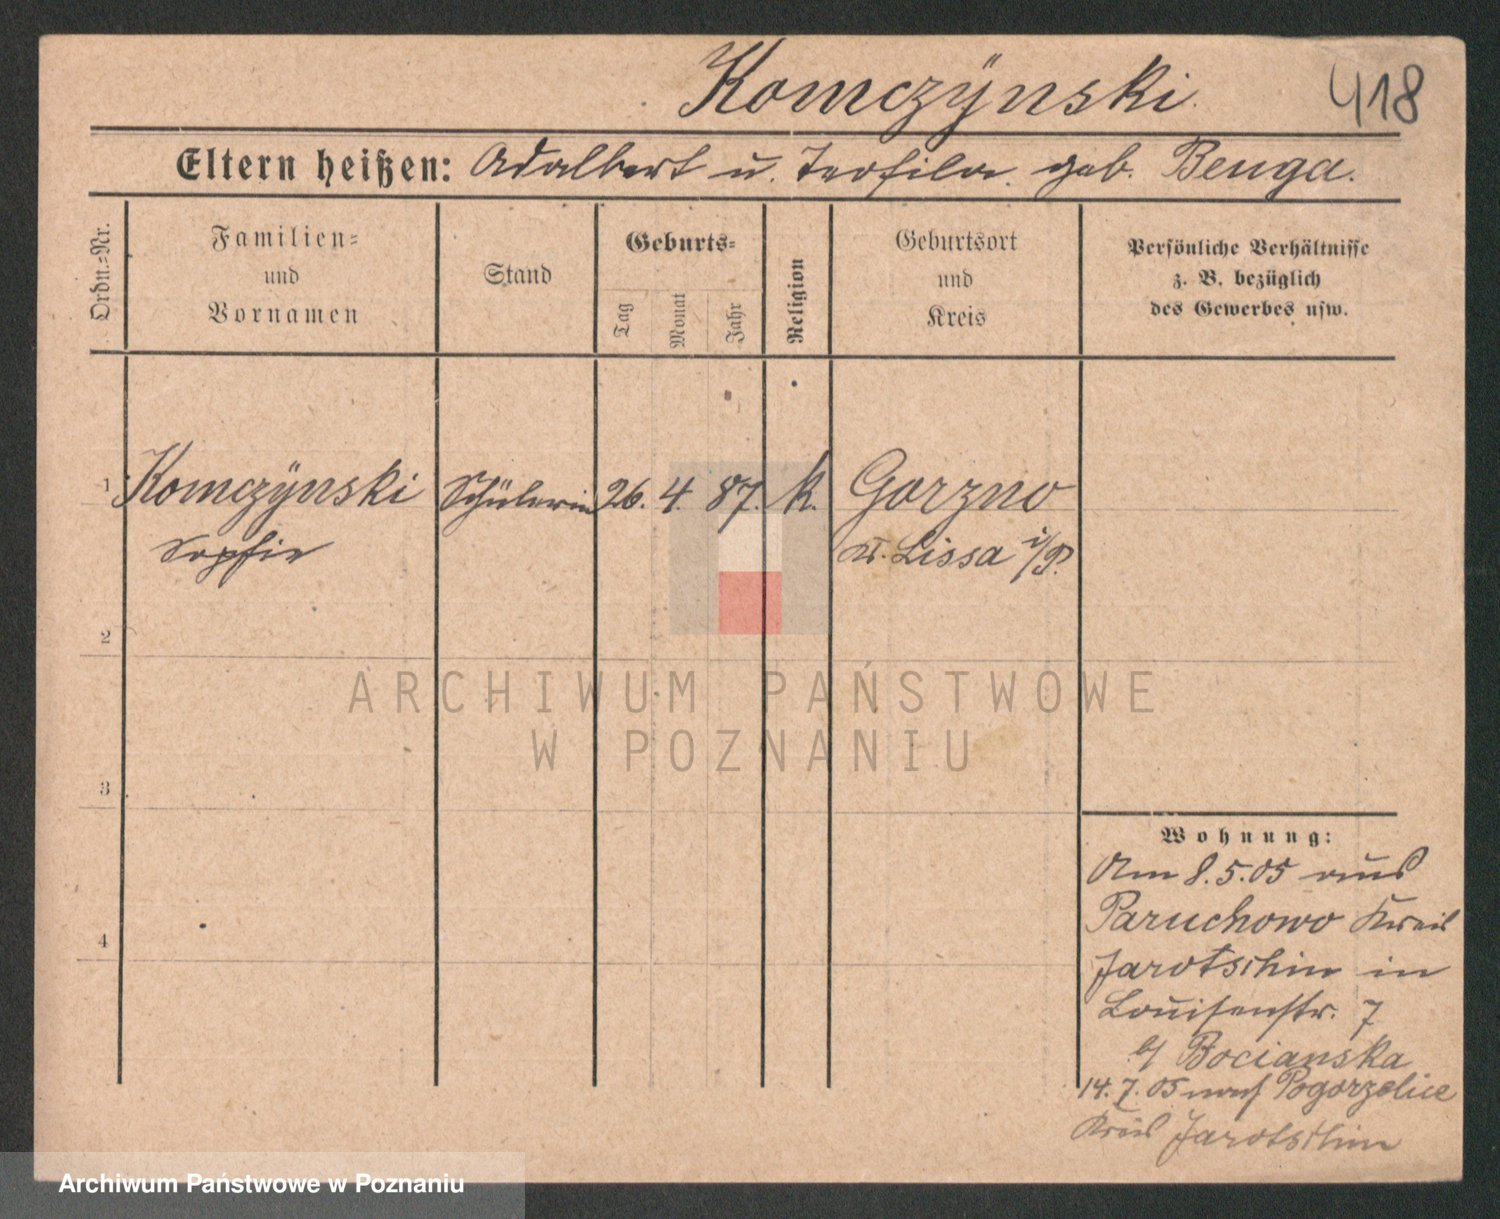 Komczÿnski 418
Eltern heißen: Adalbert u. Teofila. geb. Benga.
Ordn.=Nr.
Familien=
und
Vornamen
Stand
Geburts=
Tag Monat Jahr
Religion
Geburtsort
und
Kreis
Persönliche Verhältnisse
z. B. bezüglich
des Gewerbes usw.
1 Komczÿnski Schülerin 26. 4. 87. k. Gorzno
Sophie Kr. Lissa i/P.
2
ARCHIWUM PAŃSTWOWE
W POZNANIU
3
Wohnung:
Am 8.5.05 aus
Paruchowo Kreis
Jarotschin in
Louisenstr. 7
b/ Bocianska
14. 7. 05 nach Pogorzelice
Kreis Jarotschin
4
Archiwum Państwowe w Poznaniu